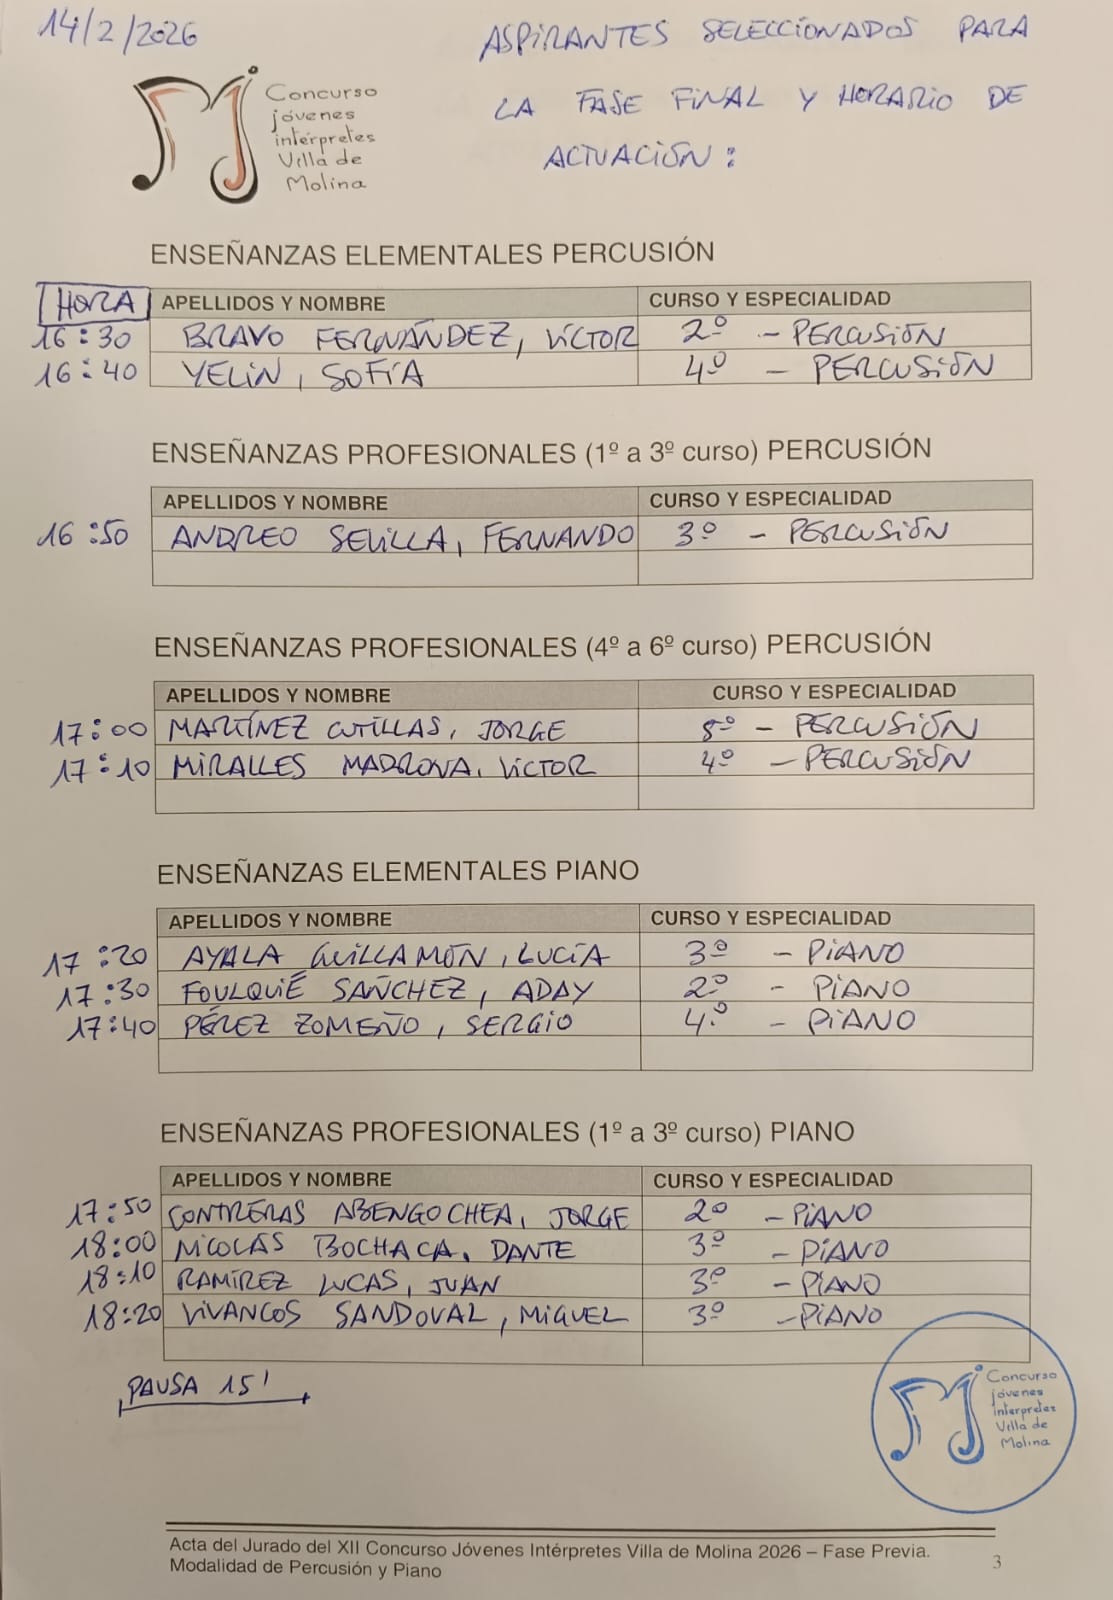 14/2/2026
ASPIRANTES SELECCIONADOS PARA
LA FASE FINAL Y HORARIO DE
ACTUACIÓN:
Concurso
jóvenes
intérpretes
Villa de
Molina
ENSEÑANZAS ELEMENTALES PERCUSIÓN
HORA APELLIDOS Y NOMBRE CURSO Y ESPECIALIDAD
16:30 BRAVO FERNÁNDEZ, VÍCTOR 2º - PERCUSIÓN
16:40 YELIN, SOFÍA 4º - PERCUSIÓN
ENSEÑANZAS PROFESIONALES (1º a 3º curso) PERCUSIÓN
APELLIDOS Y NOMBRE CURSO Y ESPECIALIDAD
16:50 ANDREO SEVILLA, FERNANDO 3º - PERCUSIÓN
ENSEÑANZAS PROFESIONALES (4º a 6º curso) PERCUSIÓN
APELLIDOS Y NOMBRE CURSO Y ESPECIALIDAD
17:00 MARTÍNEZ CUTILLAS, JORGE 5º - PERCUSIÓN
17:10 MIRALLES MADRONA, VÍCTOR 4º - PERCUSIÓN
ENSEÑANZAS ELEMENTALES PIANO
APELLIDOS Y NOMBRE CURSO Y ESPECIALIDAD
17:20 AYALA GUILLAMÓN, LUCÍA 3º - PIANO
17:30 FOULQUIÉ SÁNCHEZ, ADAY 2º - PIANO
17:40 PÉREZ ZOMEÑO, SERGIO 4º - PIANO
ENSEÑANZAS PROFESIONALES (1º a 3º curso) PIANO
APELLIDOS Y NOMBRE CURSO Y ESPECIALIDAD
17:50 CONTRERAS ABENGOCHEA, JORGE 2º - PIANO
18:00 NICOLÁS BOCHACA, DANTE 3º - PIANO
18:10 RAMÍREZ LUCAS, JUAN 3º - PIANO
18:20 VIVANCOS SANDOVAL, MIGUEL 3º - PIANO
PAUSA 15'
Concurso
jóvenes
intérpretes
Villa de
Molina
Acta del Jurado del XII Concurso Jóvenes Intérpretes Villa de Molina 2026 – Fase Previa.
Modalidad de Percusión y Piano
3